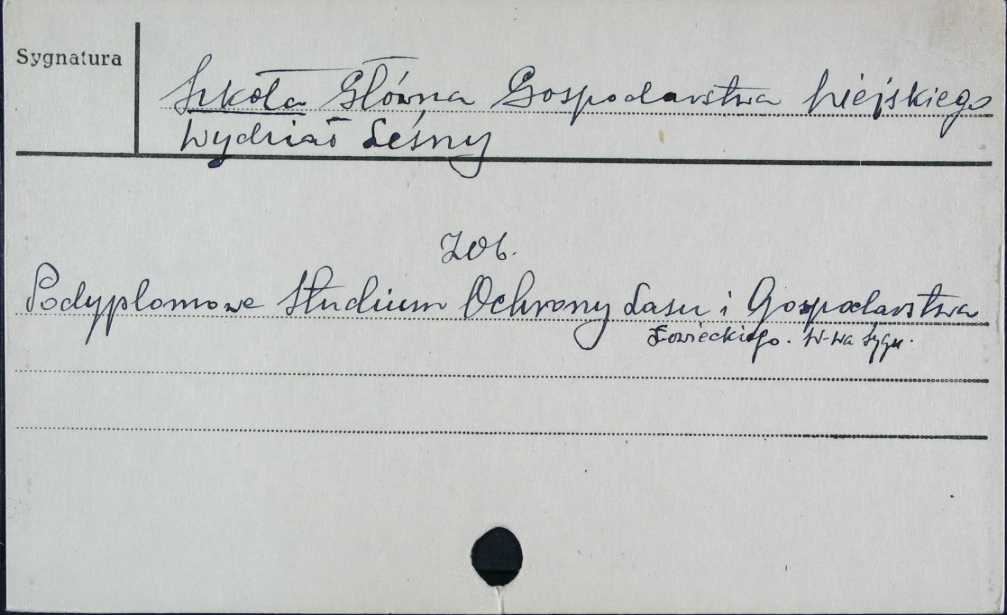 Sygnatura
Szkoła Główna Gospodarstwa Wiejskiego
Wydział Leśny
Zob.
Podyplomowe Studium Ochrony Lasu i Gospodarstwa
Łowieckiego. W-wa Sygn.